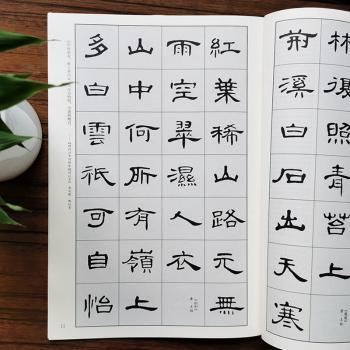 林復照青苔上
荊溪白石出天寒
紅葉稀山路元無
雨空翠濕人衣
山中何所有嶺上
多白雲祇可自怡